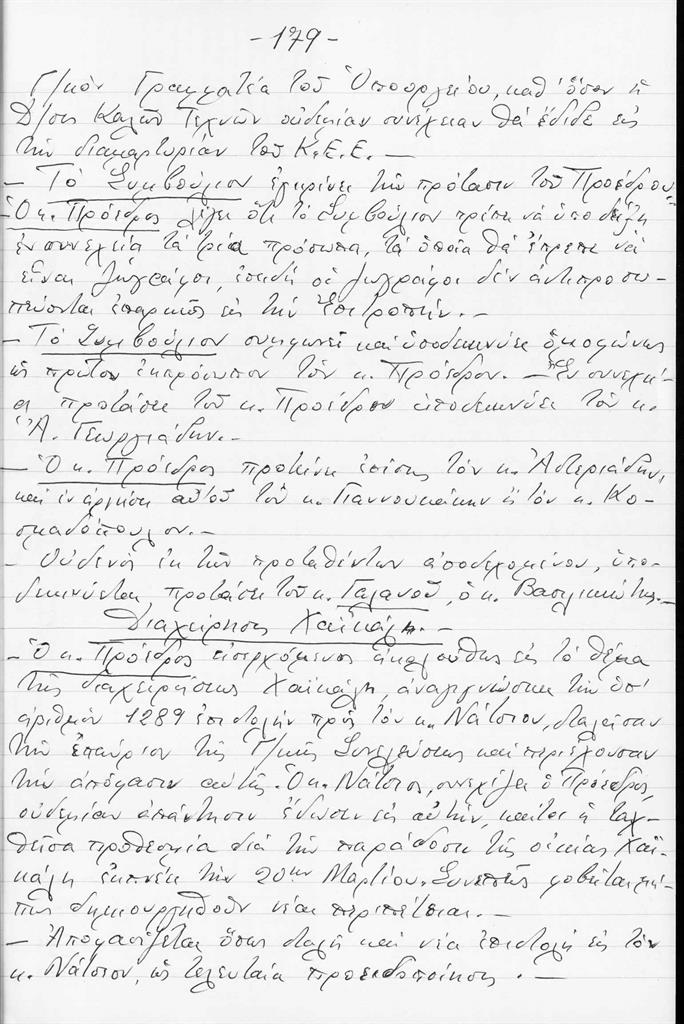 -179-
Γ/κόν Γραμματέα τοῦ Ὑπουργείου, καθ' ὅσον ἡ
Δ/σις Καλῶν Τεχνῶν οὐδεμίαν συνέχειαν θά ἔδιδε εἰς
τήν διαμαρτυρίαν τοῦ Κ.Ε.Ε. —
- Τό Συμβούλιον ἐγκρίνει τήν πρότασιν τοῦ Προέδρου
Ὁ κ. Πρόεδρος λέγει ὅτι τό Συμβούλιον πρέπει νά ὑποδείξη
ἐν συνεχεία τά τρία πρόσωπα, τά ὁποῖα θά ἔπρεπε νά
εἶναι ζωγράφοι, ἐπειδή οἱ ζωγράφοι δέν ἀντιπροσω-
πεύονται ἐπαρκῶς εἰς τήν Ἐπιτροπήν. -
- Τό Συμβούλιον συμφωνεῖ καί ὑποδεικνύει ὁμοφώνως
ὡς πρῶτον ἐκπρόσωπον τόν κ. Πρόεδρον. - Ἐν συνεχεί-
α προτάσει τοῦ κ. Προέδρου ὑποδεικνύει τόν κ.
Ἀ. Γεωργιάδην.-
- Ὁ κ. Πρόεδρος προτείνει ἐπίσης τόν κ. Ἀστεριάδην,
καί ἐν ἀρνήσει αὐτοῦ τόν κ. Γιαννουκάκην ἤ τόν κ. Κο-
σμαδόπουλον.-
- Οὐδενός ἐκ τῶν προταθέντων ἀποδεχομένου, ὑπο-
δεικνύεται προτάσει τοῦ κ. Γαλανοῦ, ὁ κ. Βασιλικιώτης.-
Διαχείρησις Χαϊκάλη.-
- Ὁ κ. Πρόεδρος εἰσερχόμενος ἀκολούθως εἰς τό θέμα
τῆς διαχειρήσεως Χαϊκάλη, ἀναγιγνώσκει τήν ὑπ'
ἀριθμόν 1289 ἐπιστολήν πρός τόν κ. Νάτσιον, σταλεῖσαν
τήν ἐπαύριον τῆς Γ/κῆς Συνελεύσεως καί περιέχουσαν
τήν ἀπόφασιν αὐτῆς. Ὁ κ. Νάτσιος, συνεχίζει ὁ Πρόεδρος,
οὐδεμίαν ἀπάντησιν ἔδωσεν εἰς αὐτήν, καίτοι ἡ ταχ-
θεῖσα προθεσμία διά τήν παράδοσιν τῆς οἰκίας Χαϊ-
κάλη ἐκπνέει τήν 20ην Μαρτίου. Συνεπῶς φοβεῖται μή-
πως δημιουργηθοῦν νέαι περιπέτειαι.-
- Ἀποφασίζεται ὅπως σταλῆ καί νέα ἐπιστολή εἰς τόν
κ. Νάτσιον, ὡς τελευταία προειδοποίησις. —